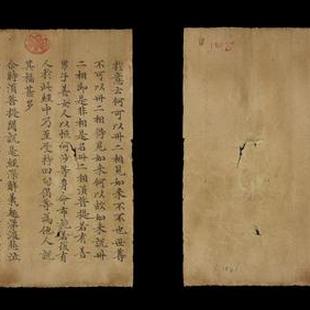 於意云何可以卅二相見如來不不也世尊
不可以卅二相得見如來何以故如來說卅
二相即是非相是名卅二相湏菩提若有善
男子善女人以恒河沙等身命布施若復有
人於此經中乃至受持四句偈等為他人說
其福甚多
尒時湏菩提聞說是經深解義趣涕淚悲泣